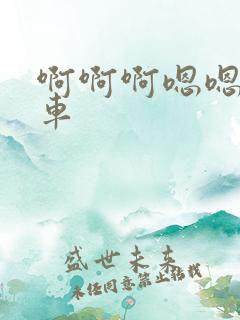 啊啊啊嗯嗯
車
盛世未来
未经同意禁止转载